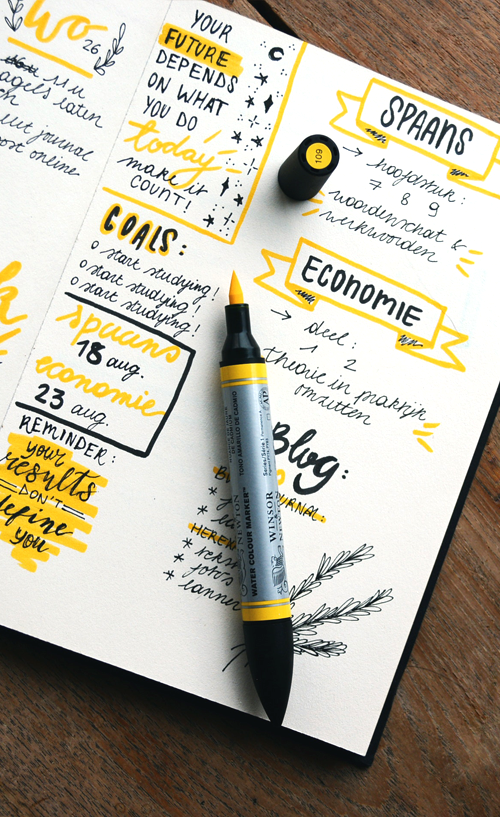 Wo
26
journal
online
YOUR
FUTURE
DEPENDS
ON WHAT
YOU DO
today
make it
COUNT!
GOALS:
o start studying!
o start studying!
o start studying!
spaans
18 aug.
economie
23 aug.
REMINDER:
your
results
DON'T
define
you
109
SPAANS
→ hoofdstuk:
7 8 9
woordenschat &
werkwoorden
ECONOMIE
→ deel:
1 2
theorie in praktijk
omzetten
Blog:
JOURNAL:
WINSOR
NEWTON
WATER COLOUR MARKER™
TONO AMARILLO DE CADMIO
Series/Série 1